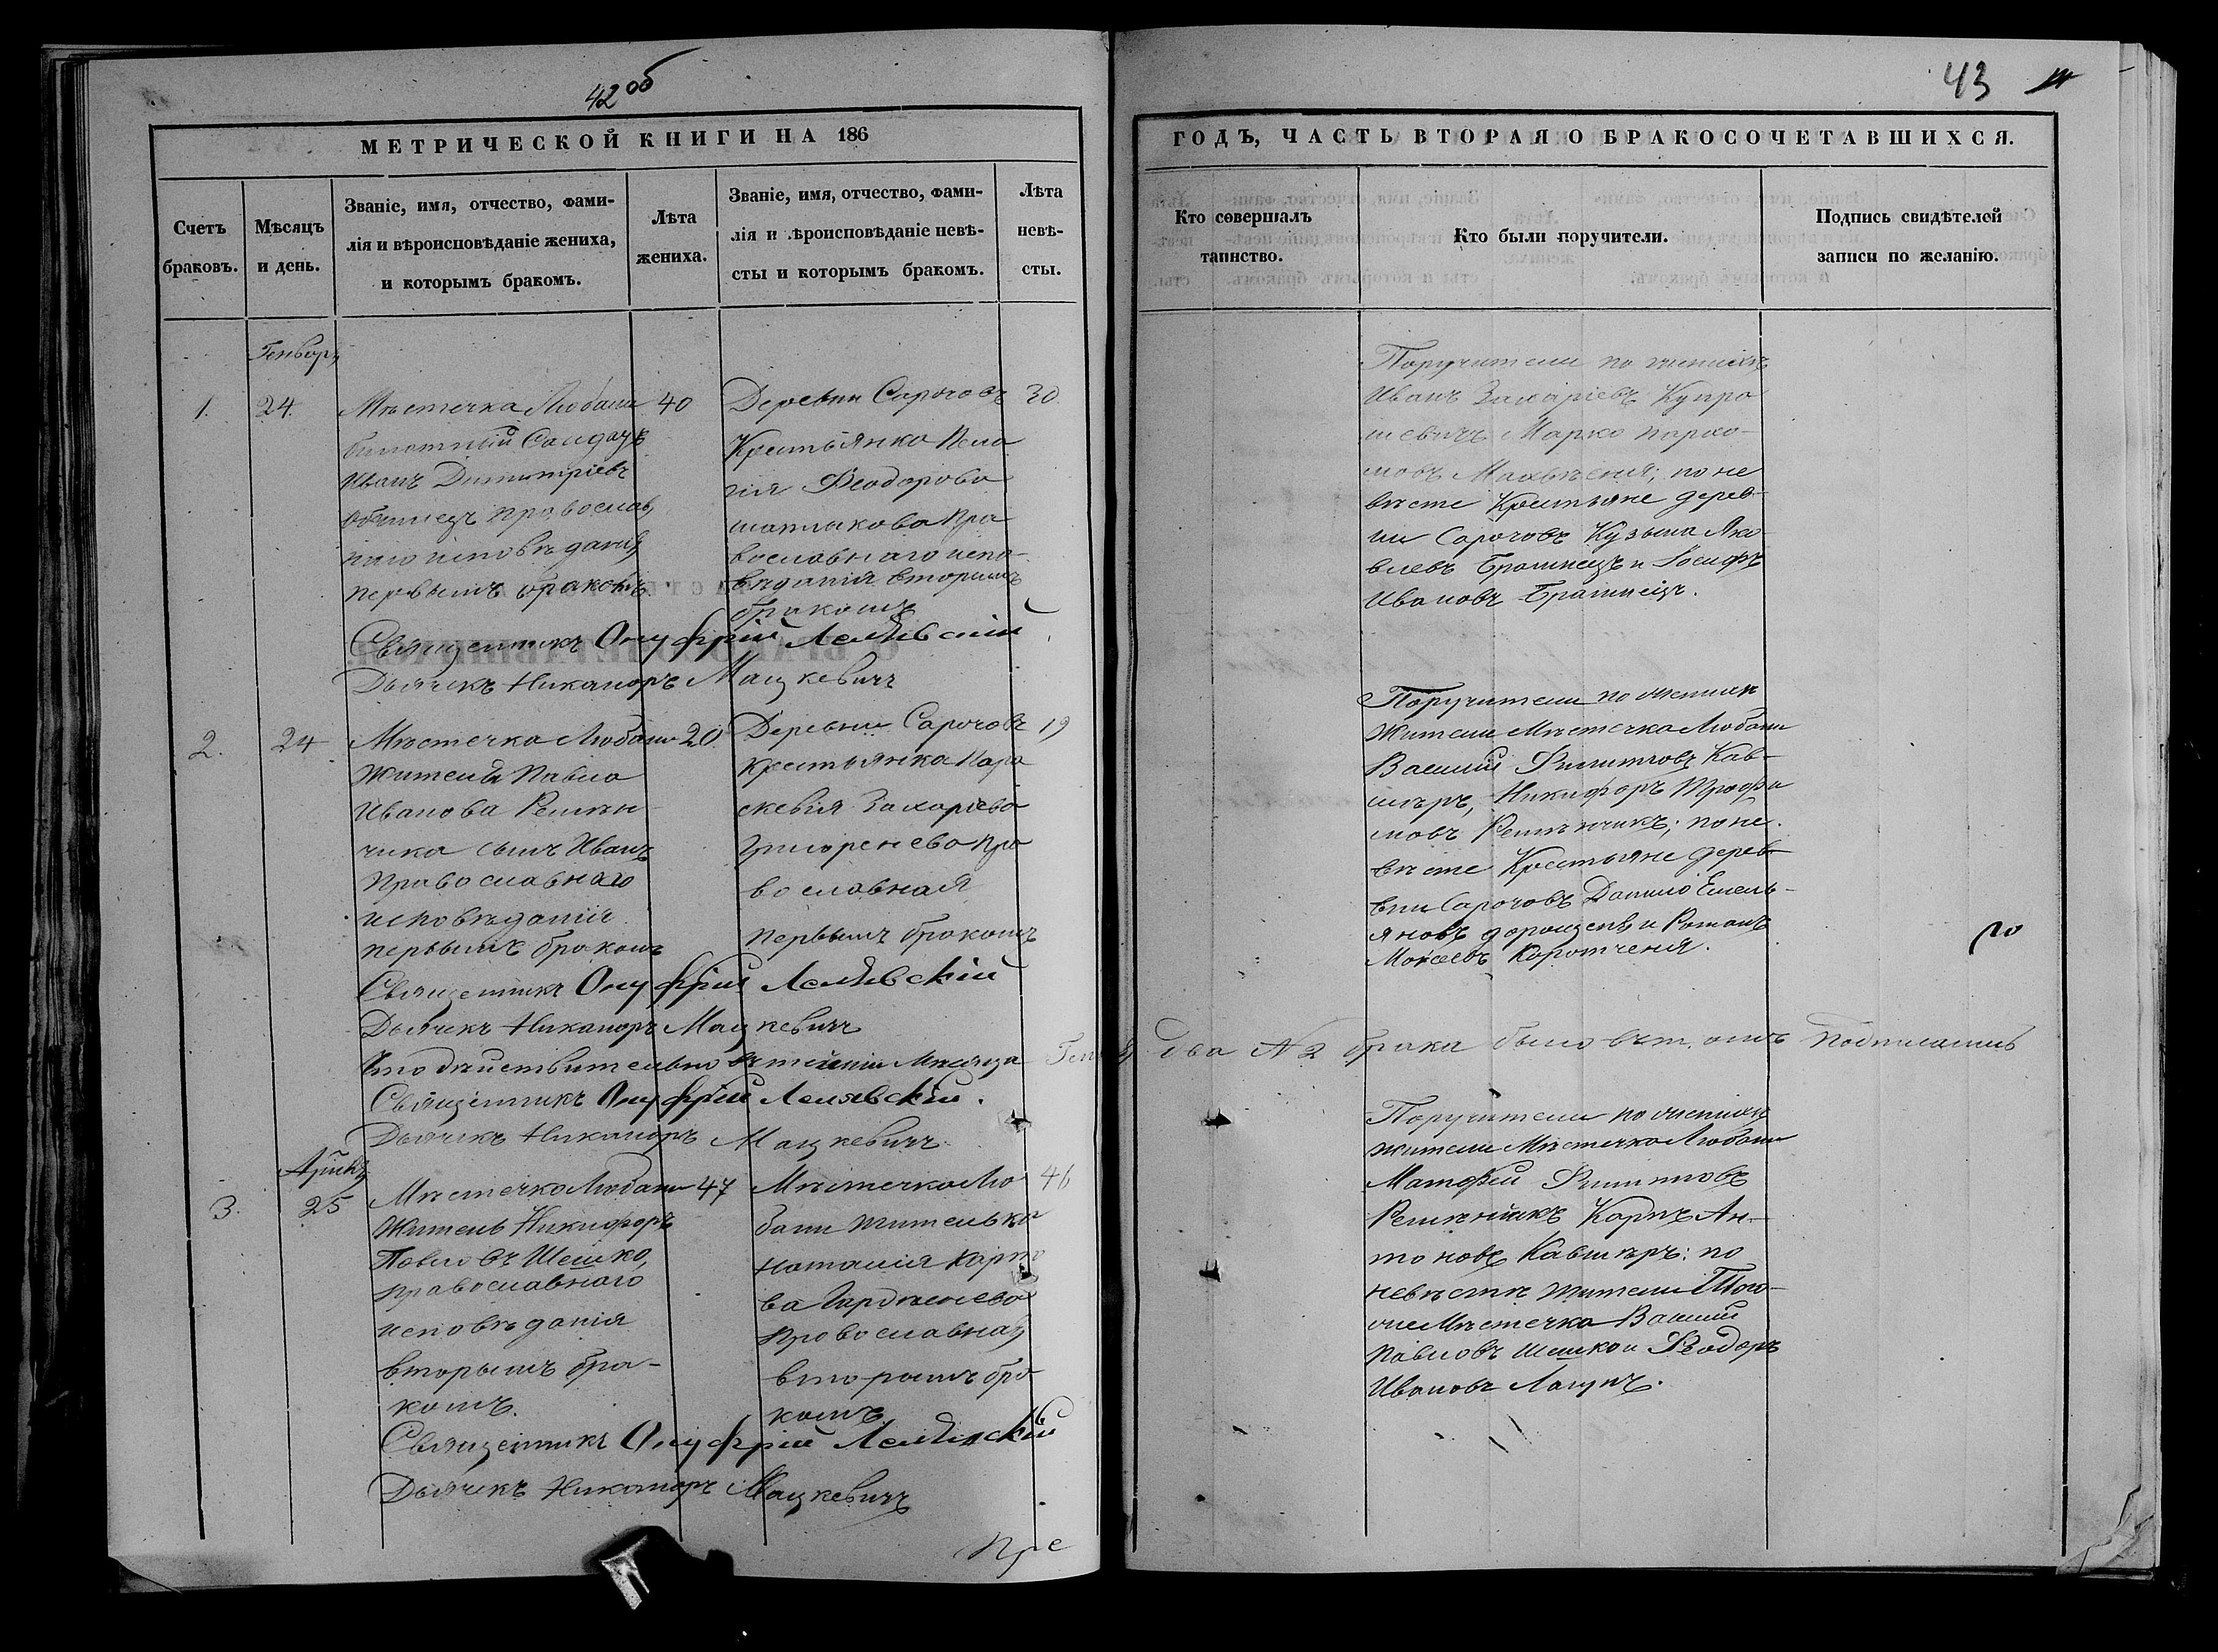 42 об
МЕТРИЧЕСКОЙ КНИГИ НА 186
Счетъ браковъ.
Мѣсяцъ и день.
Званіе, имя, отчество, фами-
лія и вѣроисповѣданіе жениха,
и которымъ бракомъ.
Лѣта
жениха.
Званіе, имя, отчество, фами-
лія и вѣроисповѣданіе невѣ-
сты и которымъ бракомъ.
Лѣта
невѣ-
сты.
Генворь
1.
24.
Мѣстечка Любани
Солдатъ
Иванъ Димитріевъ
православ
наго исповѣданія
первымъ бракомъ
40
Деревни Сорочовъ
Крестьянка Пела
гія Феодорова
Пра
вославнаго испо-
вѣданія вторымъ
бракомъ
30.
Священникъ Онуфрій
Дьячекъ Никаноръ Мацкевичъ
2.
24
Мѣстечка Любани
жителя Павла
Иванова Решѣт
чика сынъ Иванъ
Православнаго
исповѣданія
первымъ бракомъ
20.
Деревни Сорочовъ
крестьянка Пара
скевія Захаріева
Григоренева Пра
вославная
первымъ бракомъ
19
Священникъ Онуфрій
Дьячекъ Никаноръ Мацкевичъ
Что дѣйствительно въ теченіи Мѣсяца
Священникъ Онуфрій
Дьячекъ Никаноръ Мацкевичъ
Априль
3.
25
Мѣстечка Любани
житель Никифоръ
Павловъ Шешко,
православнаго
исповѣданія
вторымъ бра-
комъ.
47
Мѣстечка Лю
бани жителька
Наталія Карпо
ва
Православная
вторымъ бра
комъ
46
Священникъ Онуфрій
Дьячекъ Никаноръ Мацкевичъ
Пре
43
ГОДЪ, ЧАСТЬ ВТОРАЯ О БРАКОСОЧЕТАВШИХСЯ.
Кто совершалъ
таинство.
Кто были поручители.
Подпись свидѣтелей
записи по желанію.
Поручители по женихѣ
Иванъ Захаріевъ Купра
шевичъ Марко Пархо-
мовъ по не
вѣсте Крестьяне дерев-
ни Сорочовъ Кузьма Яко
влевъ Браинецъ и Іосифъ
Ивановъ Браинецъ.
Поручители по женихѣ
Жители Мѣстечка Любани
Василій Филиповъ Кав-
шѣръ, Никифоръ Трофи
мовъ по не-
вѣсте Крестьяне дерев-
вни Сорочовъ Данило Емель-
яновъ и Романъ
Моисеевъ Коротченя.
два № 2 брака было въ томъ подписались
Поручители по женихѣ
жители Мѣстечка Любани
Матфей Филиповъ
Карпъ Ан-
тоновъ Кавшѣръ: по
невѣсте жители Того-
же Мѣстечка Василій
Павловъ Шешко и Феодоръ
Ивановъ Лапунъ.